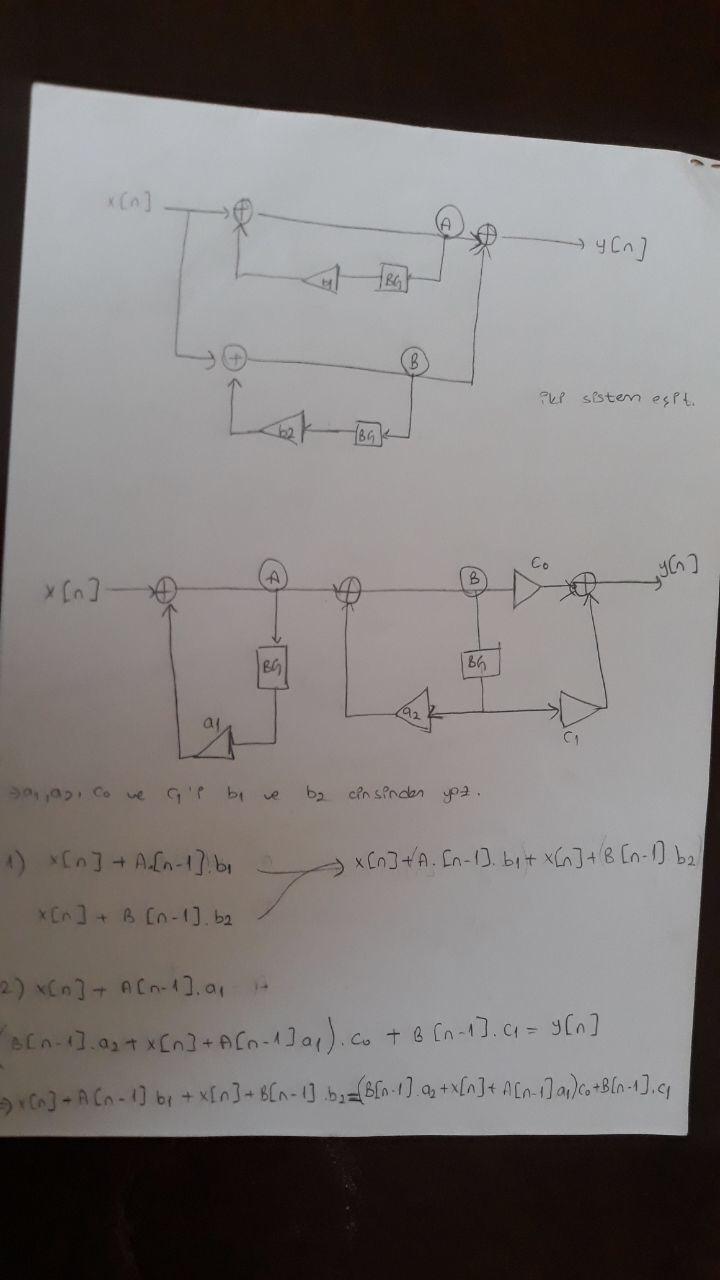 x[n]
A
y[n]
BG
b1
B
b2
BG
iki sistem eşit.
x[n]
A
B
c0
y[n]
BG
BG
a1
a2
c1
⇒ a1, a2, c0 ve c1'i b1 ve b2 cinsinden yaz.
1) x[n] + A[n-1].b1
x[n] + A.[n-1].b1 + x[n] + B[n-1] b2
x[n] + B[n-1].b2
2) x[n] + A[n-1].a1
(B[n-1].a2 + x[n] + A[n-1]a1).c0 + B[n-1].c1 = y[n]
⇒ x[n] + A[n-1] b1 + x[n] + B[n-1].b2 = (B[n-1].a2 + x[n] + A[n-1]a1)c0 + B[n-1].c1